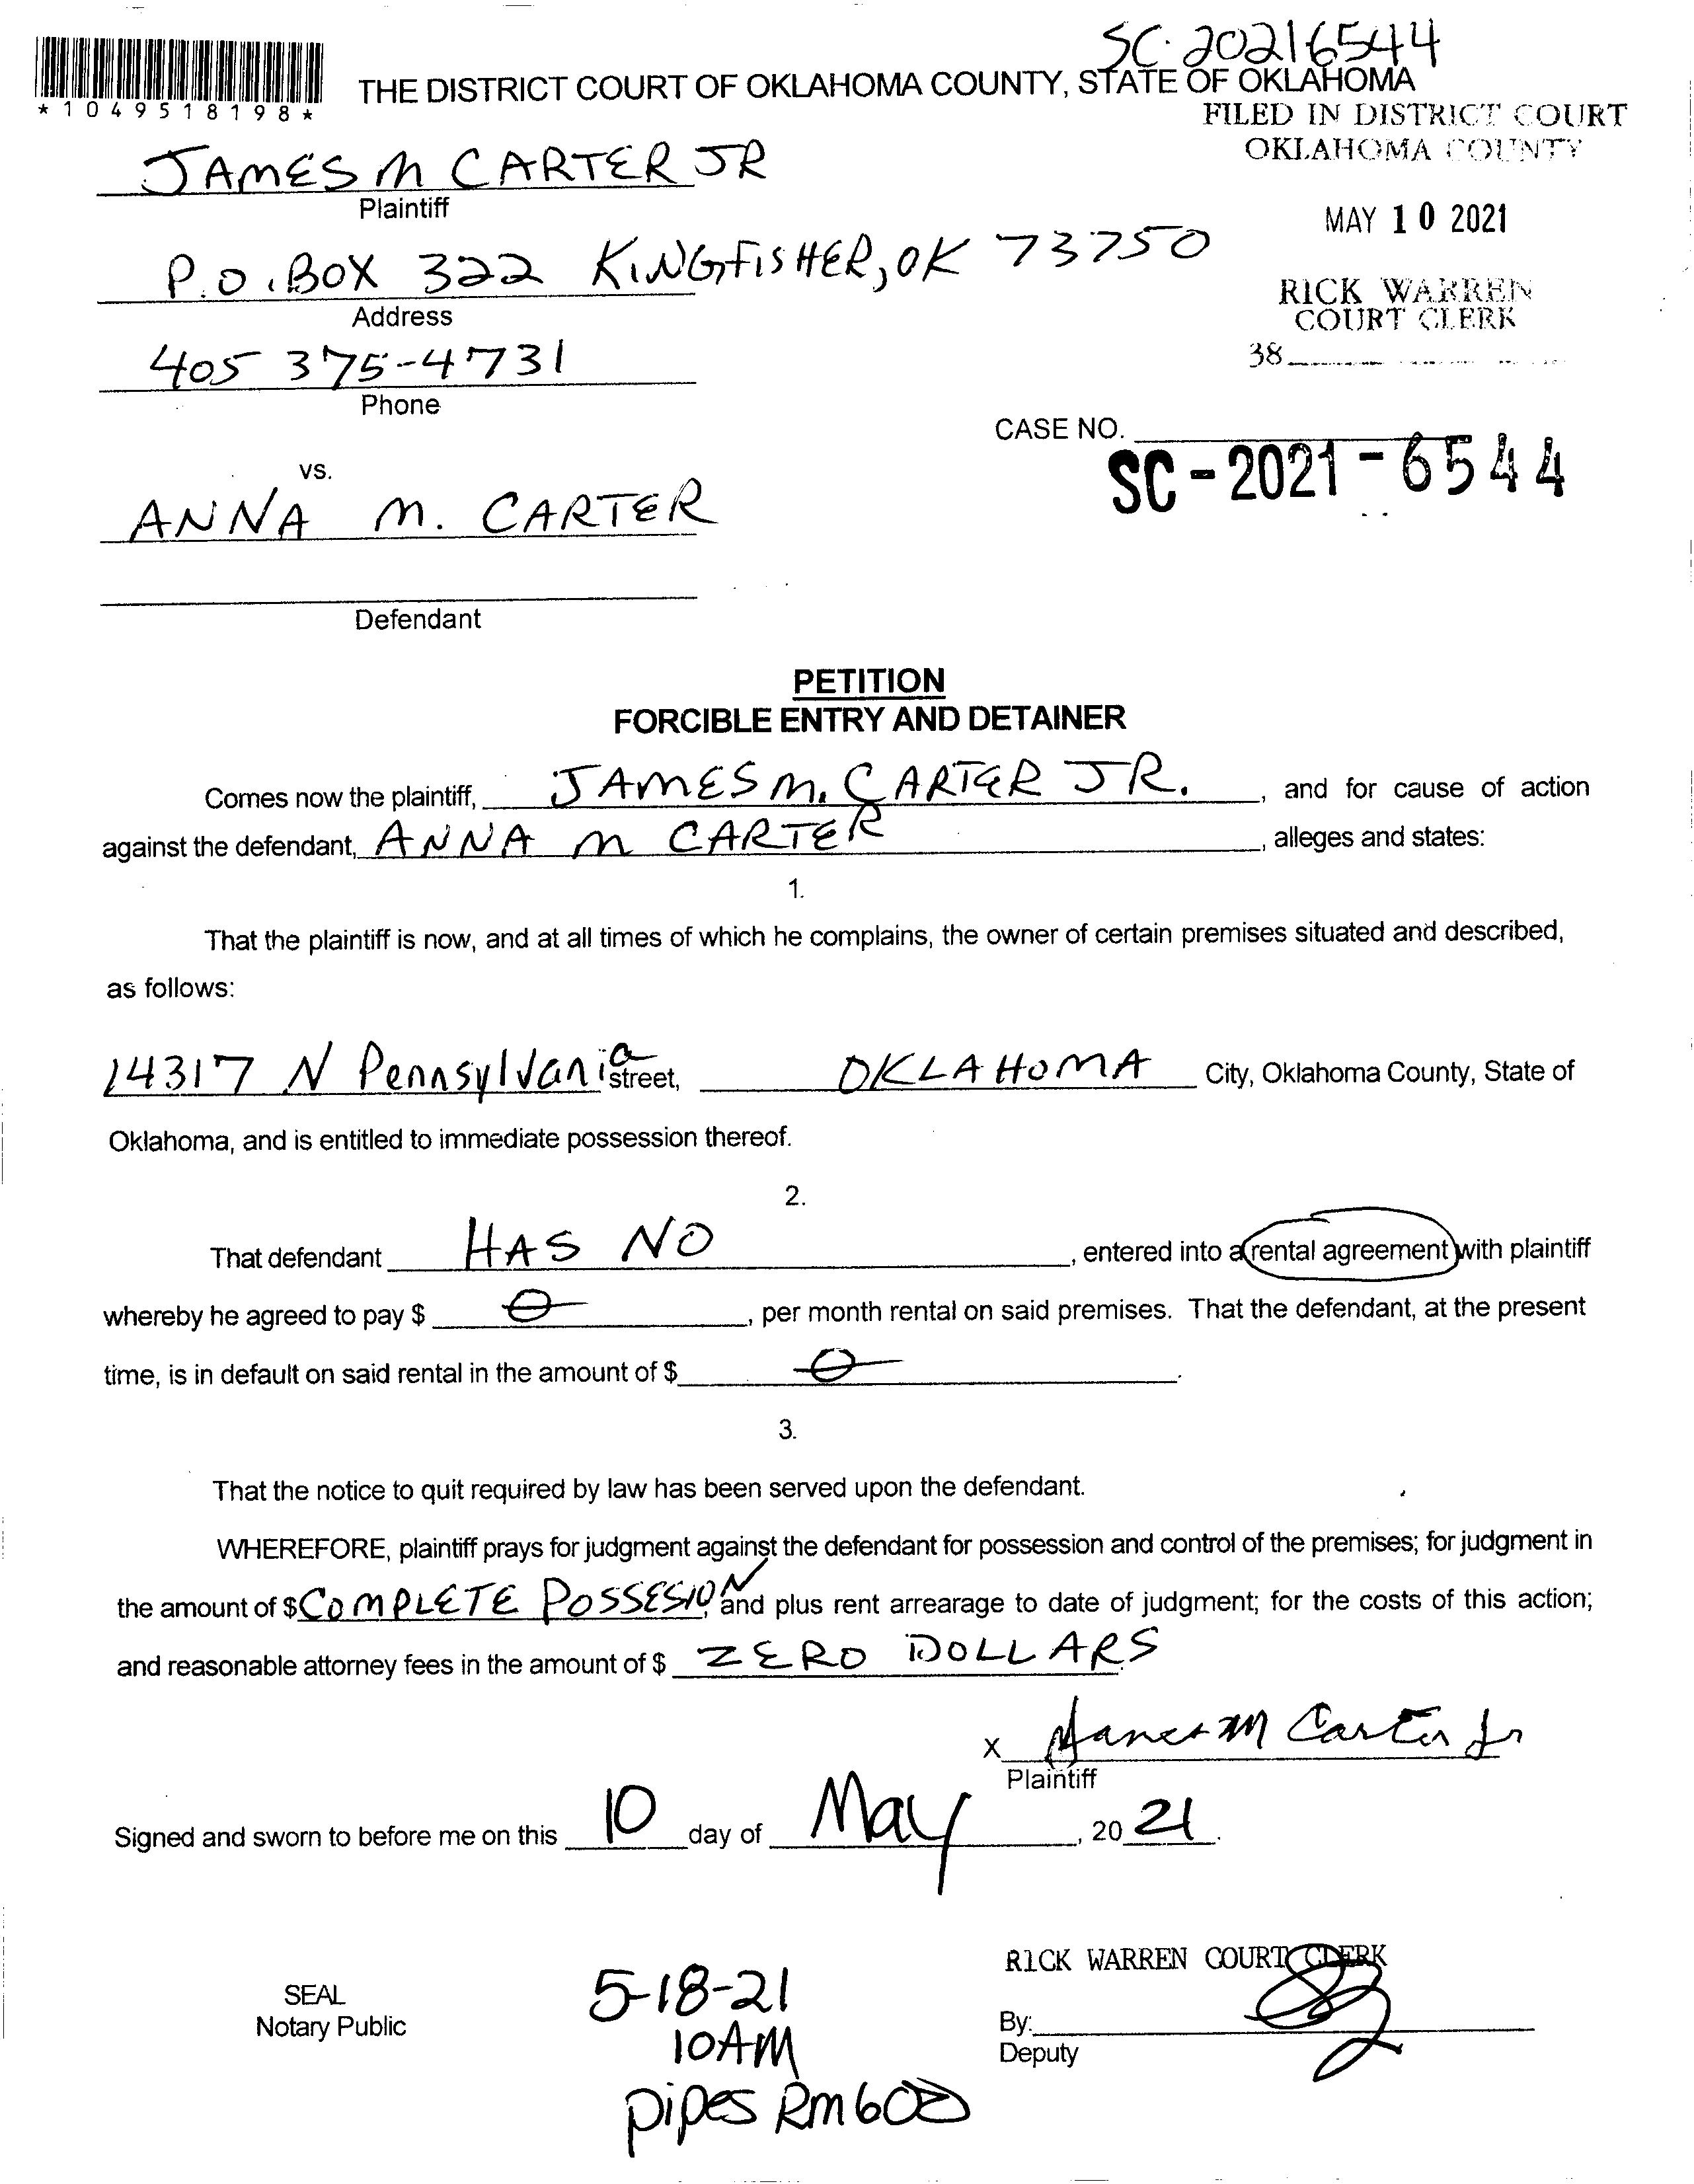 SC-20216544
*1049518198*
THE DISTRICT COURT OF OKLAHOMA COUNTY, STATE OF OKLAHOMA
FILED IN DISTRICT COURT
OKLAHOMA COUNTY
JAMES M CARTER JR
Plaintiff
MAY 10 2021
P.O. BOX 322 KINGFISHER, OK 73750
Address
RICK WARREN
COURT CLERK
405 375-4731
Phone
38
CASE NO.
SC-2021-6544
vs.
ANNA M. CARTER
Defendant
PETITION
FORCIBLE ENTRY AND DETAINER
Comes now the plaintiff, JAMES M. CARTER JR. , and for cause of action
against the defendant, ANNA M CARTER , alleges and states:
1.
That the plaintiff is now, and at all times of which he complains, the owner of certain premises situated and described,
as follows:
14317 N Pennsylvania street, OKLAHOMA City, Oklahoma County, State of
Oklahoma, and is entitled to immediate possession thereof.
2.
That defendant HAS NO , entered into a rental agreement with plaintiff
whereby he agreed to pay $ 0 , per month rental on said premises. That the defendant, at the present
time, is in default on said rental in the amount of $ 0 .
3.
That the notice to quit required by law has been served upon the defendant.
WHEREFORE, plaintiff prays for judgment against the defendant for possession and control of the premises; for judgment in
the amount of $ COMPLETE POSSESION, and plus rent arrearage to date of judgment; for the costs of this action;
and reasonable attorney fees in the amount of $ ZERO DOLLARS.
x James M Carter Jr
Plaintiff
Signed and sworn to before me on this 10 day of May , 20 21 .
RICK WARREN COURT CLERK
SEAL
Notary Public
5-18-21
10AM
Pipes Rm 600
By:
Deputy